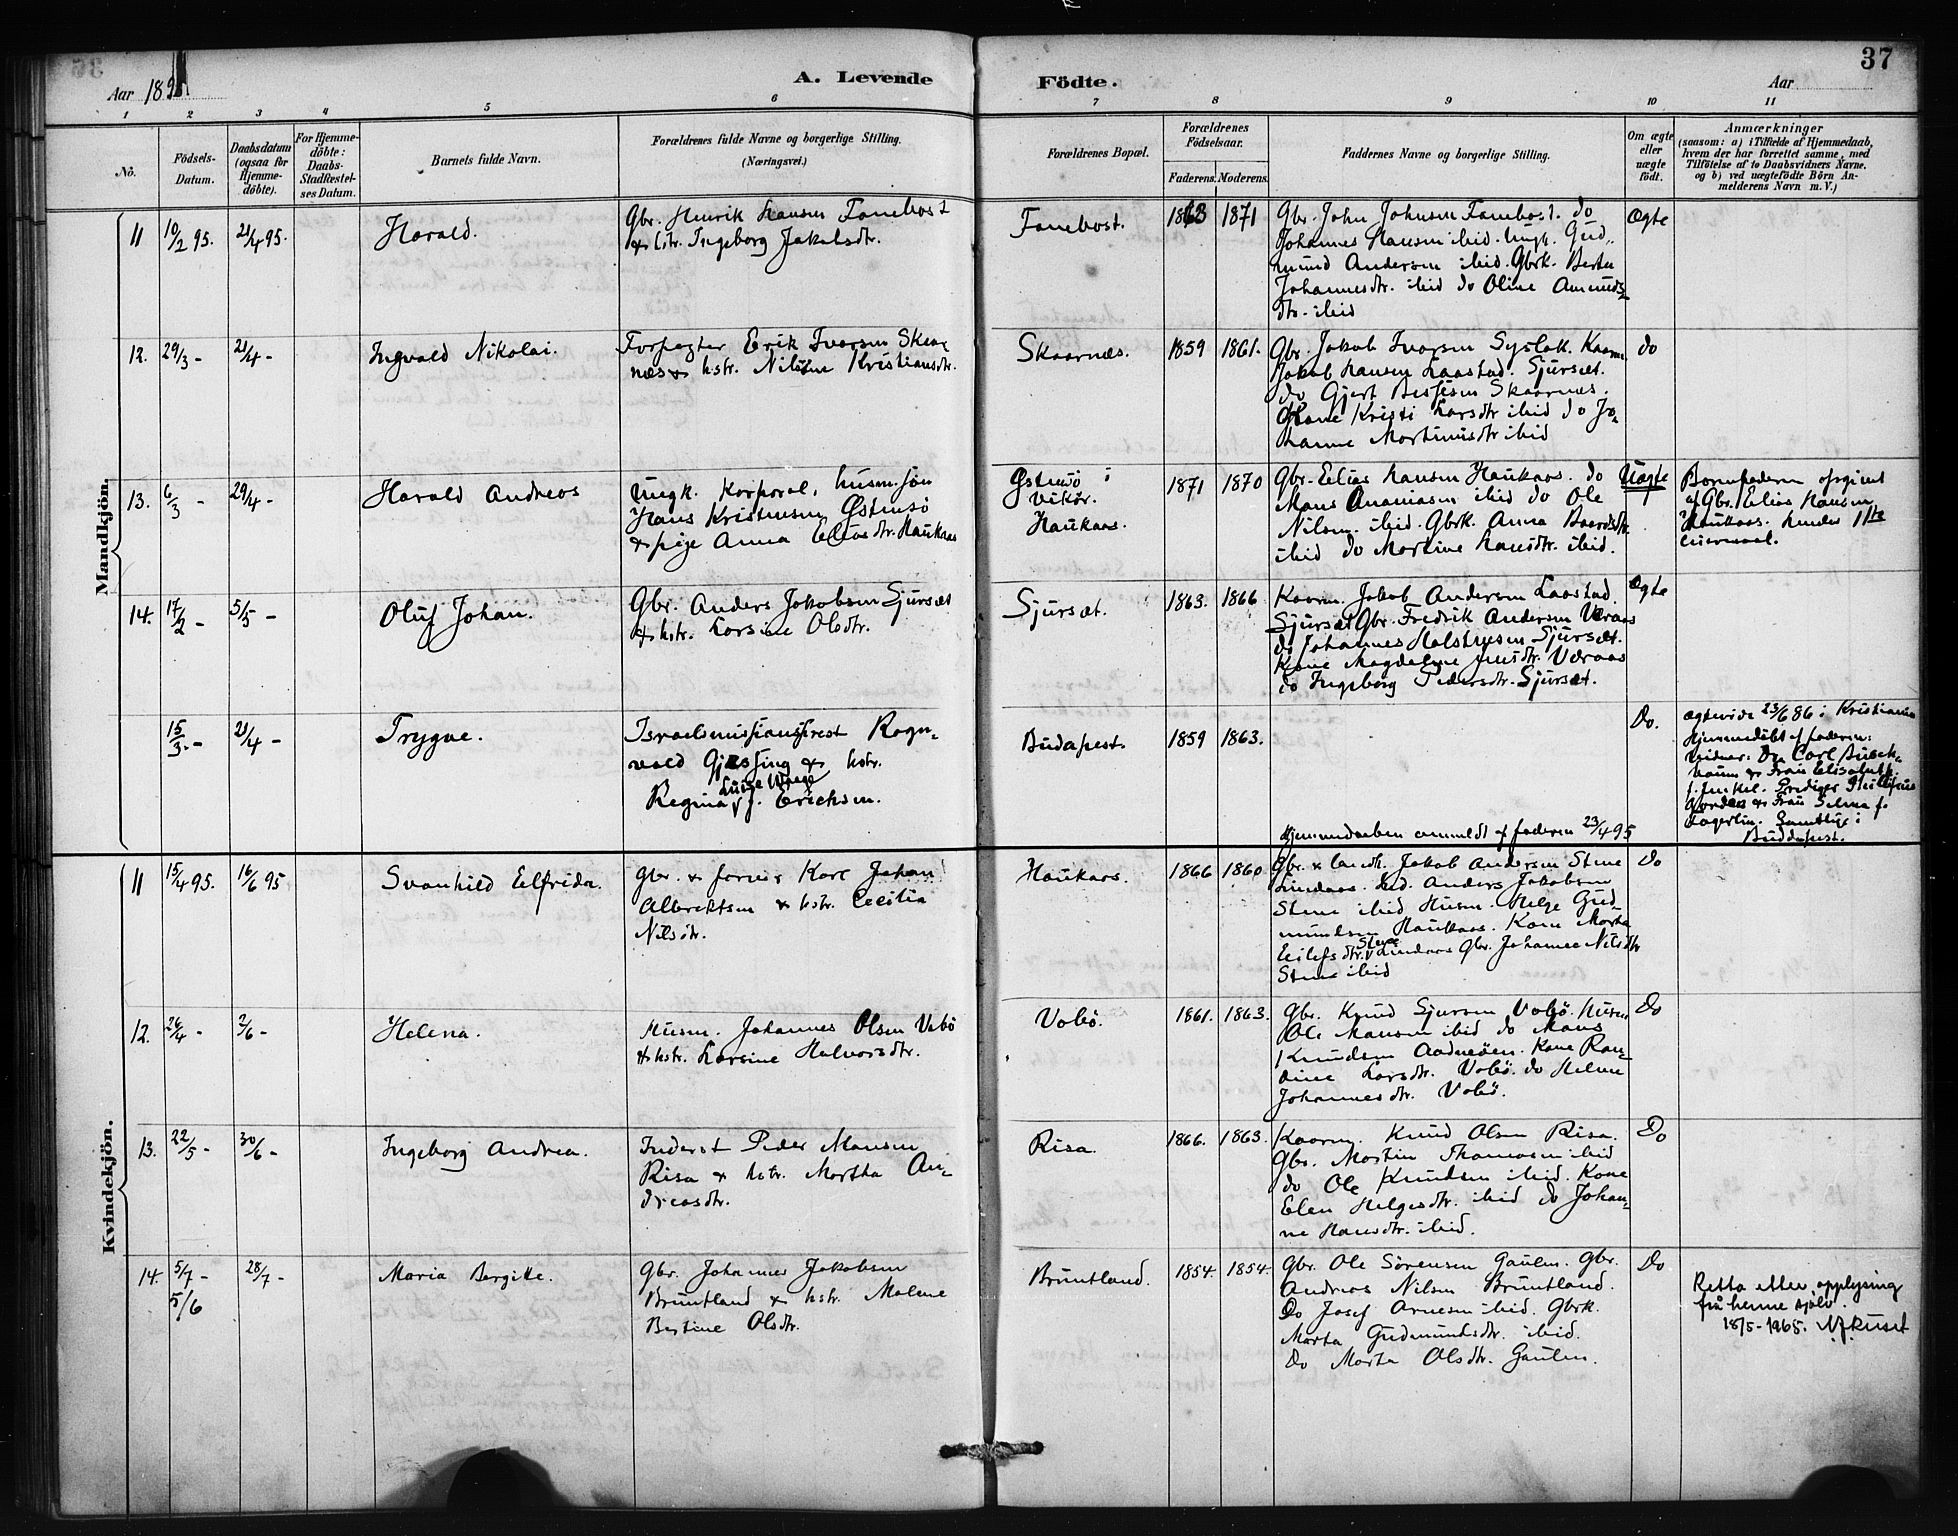 37
Aar 1895
A. Levende
Födte.
Aar
1 2 3 4 5 6 7 8 9 10 11
Nô.
Födsels-Datum.
Daabsdatum (ogsaa for Hjemme-döbte).
For Hjemme-döbte: Daabs-Stadfestel-ses Datum.
Barnets fulde Navn.
Forældrenes fulde Navne og borgerlige Stilling. (Næringsvei.)
Forældrenes Bopæl.
Forældrenes Födselsaar.
Faderens. Moderens.
Faddernes Navne og borgerlige Stilling.
Om ægte eller uægte födt.
Anmærkninger
(saasom: a) i Tilfælde af Hjemmedaab,
hvem der har forrettet samme, med
Tilföielse af to Daabsvidners Navne,
og b) ved uægtefödte Börn An-
melderens Navn m. V.)
Mandkjön.
11 10/2 95. 21/4 95. Harald.
Gbr. Henrik Hansen Fanebost
& hstr. Ingeborg Jakobsdtr.
Fanebost. 1863 1871
Gbr. John Johnsen Fanebost. do
Johannes Hansen ibid. Ungk. Gud-
mund Andersen ibid. Gbrk. Berta
Johannesdtr. ibid do Oline Amunds-
dtr. ibid
Ægte
12. 29/3 - 21/4 - Ingvald Nikolai.
Forpagter Erik Iversen Skaar-
næs & hstr. Nilsine Kristiansdtr.
Skaarnæs. 1859 1861.
Gbr. Jakob Ivarsen Syslak. Kaarm.
Jakob Hansen Laastad. Sjursæt.
do Gjert Skaarnæs.
Kone Kristi Larsdtr ibid do Jo-
hanne Martinusdtr ibid
do
13. 6/3 - 29/4 - Harald Andreas
Ungk. Korporal, husm. søn
Hans Kristensen Østensø
& pige Anna Eliasdtr. Haukaas
Østensø i
Vikör.
Haukaas.
1871 1870
Gbr. Elias Hansen Haukaas. do
Mons Ananiasen ibid do Ole
Nilsen ibid. Gbrk. Anna Baardsdtr.
ibid do Martine Hansdtr. ibid.
Uægte
Barnefaderen opgivet
af Gbr. Elias Hansen
Haukaas. hendes 1ste
leiermaal.
14. 17/2 - 5/5 - Oluf Johan.
Gbr. Anders Jakobsen Sjursæt
& hstr. Larsine Olsdtr.
Sjursæt. 1863. 1866
Kaarm. Jakob Andersen Laastad.
Sjursæt Gbr. Fredrik Andersen Veraas
do Johannes Halstensen Sjursæt.
Kone Magdalene Jensdtr. Veraas
do Ingeborg Pedersdtr. Sjursæt.
Ægte
15/3 - 21/4 - Trygve.
Israelsmissionsprest Ragn-
vald Gjessing & hstr.
Regina Luise Waage
f. Erichsen.
Budapest. 1859 1863.
Hjemmedaaben anmeldt af faderen 23/4 95
Do.
Ægteviede 23/6 86 i Kristiania
Hjemmedöbt af faderen.
Vidner: Dr. Carl
& Frau Elisabeth
f. Prediger
& Frau Selma f.
Samtlige i
Buddapest.
Kvindekjön.
11 15/4 95. 16/6 95 Svanhild Elfrida.
Gbr. & Karl Johan
Albrektsen & hstr. Cecilia
Nilsdtr.
Haukaas. 1866 1860
Gbr. & landh. Jakob Andersen Stene
Lindaas. Anders Jakobsen
Stene ibid Husm. Helge Gud-
mundsen Haukaas. Kone Marta
Eilefsdtr. Stene Lindaas Gbr. Johanne Nilsdtr
Stene ibid
Do
12. 26/4 - 2/6 - Helena.
Husm. Johannes Olsen Vabö
& hstr. Larsine Halvorsdtr.
Vabö. 1861. 1863.
Gbr. Knud Sjursen Vabö. Husm.
Ole Mansen ibid do Mans
Knudsen Aadneöen. Kone Ran-
dine Larsdtr. Vabö. do Helene
Johannesdtr. Vabö.
Do
13. 22/5 - 30/6 - Ingeborg Andrea.
Inderst Peder Monsen
Risa & hstr. Martha An-
dreasdtr.
Risa. 1866. 1863.
Kaarm. Knud Olsen Risa.
Gbr. Martin Thomasen ibid
do Ole Knudsen ibid. Kone
Elen Helgesdtr. ibid do Johan-
ne Hansdtr. ibid.
Do
14. 5/7 - 28/7 - Maria Bergitte.
5/6
Gbr. Johannes Jakobsen
Bruntland & hstr. Malene
Bertine Olsdtr.
Bruntland. 1854. 1854.
Gbr. Ole Sörensen Gaulen. Gbr.
Andreas Nilsen Bruntland.
Do Josef Arnesen ibid. Gbrk.
Marta Gudmundsdtr. ibid.
Do Marta Olsdtr. Gaulen.
Do
Retta etter opplysing
frå henne sjølv.
18/5 - 1965.